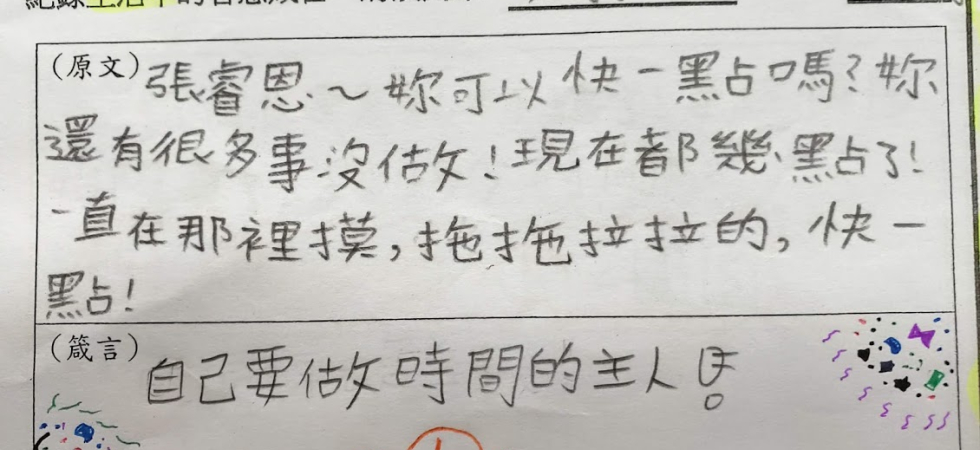 (原文)張睿恩～妳可以快一點嗎?妳
還有很多事沒做!現在都幾點了!
一直在那裡摸,拖拖拉拉的,快一
點!
(箴言)自己要做時間的主人!